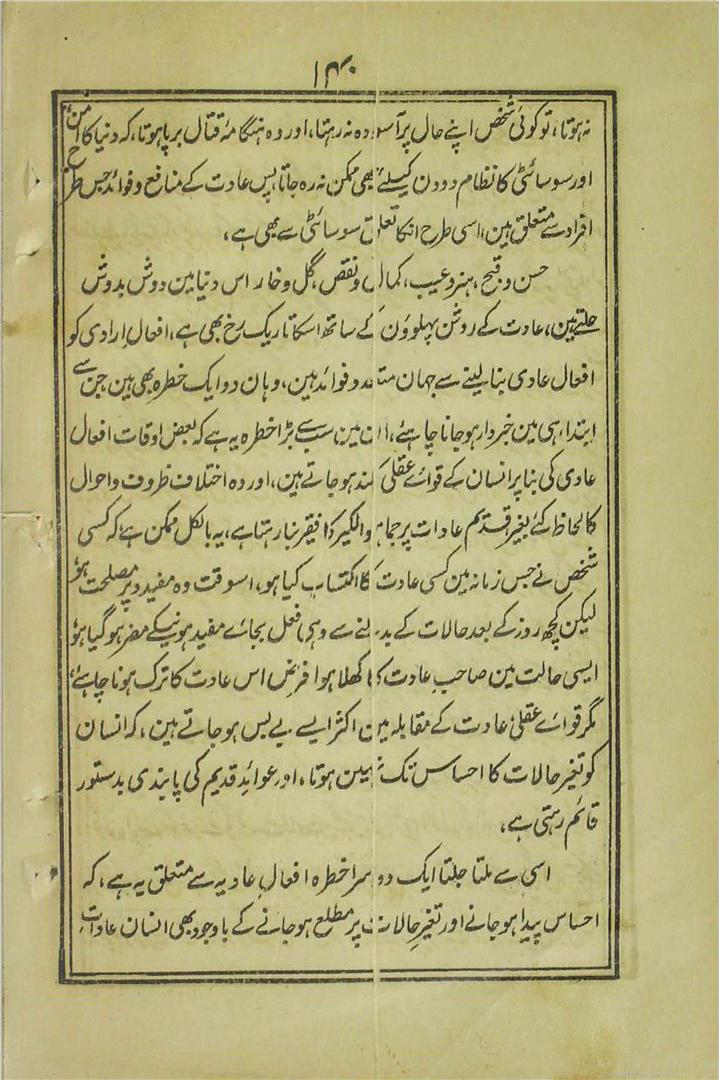 ۱۴۰
نہ ہوتا، تو کوئی شخص اپنے حال پر آسودہ نہ رہتا، اور وہ ہنگامۂ قتال برپا ہوتا، کہ دنیا کا امن،
اور سوسائٹی کا نظام دو دن کیلئے بھی ممکن نہ رہ جاتا پس عادت کے منافع و فوائد جس طرح
افراد سے متعلق ہین، اسی طرح انکا تعلق سوسائٹی سے بھی ہے،
حسن و قبح، ہنر و عیب، کمال و نقص، گل و خار اس دنیا مین دوش بدوش
چلتے ہین، عادت کے روشن پہلوؤن کے ساتھ اسکا تاریک رخ بھی ہے، افعال ارادی کو
افعال عادی بنا لینے سے جہان متعدد فوائد ہین، وہان دو ایک خطرہ بھی ہین جن سے
ابتداء ہی مین خبردار ہو جانا چاہئے، ان مین سب سے بڑا خطرہ یہ ہے کہ بعض اوقات افعال
عادی کی بنا پر انسان کے قوائے عقلی کند ہو جاتے ہین، اور وہ اختلاف ظروف و احوال
کا لحاظ کئے بغیر قدیم عادات پر جما ہوا لکیر کا فقیر بنا رہتا ہے، یہ بالکل ممکن ہے کہ کسی
شخص نے جس زمانہ مین کسی عادت کا اکتساب کیا ہو، اسوقت وہ مفید و پر مصلحت ہو،
لیکن کچھ روز کے بعد حالات کے بدلنے سے وہی فعل بجائے مفید ہونیکے مضر ہو گیا ہو،
ایسی حالت مین صاحب عادت کا کھلا ہوا فرض اس عادت کا ترک ہونا چاہئے،
مگر قوائے عقلی عادت کے مقابلہ مین اکثر ایسے بے بس ہو جاتے ہین، کہ انسان
کو تغیر حالات کا احساس تک نہین ہوتا، اور عوائد قدیم کی پابندی بدستور
قائم رہتی ہے،
اسی سے ملتا جلتا ایک دوسرا خطرہ افعالِ عادیہ سے متعلق یہ ہے، کہ
احساس پیدا ہو جانے اور تغیرِ حالات پر مطلع ہو جانے کے باوجود بھی انسان عاداتِ